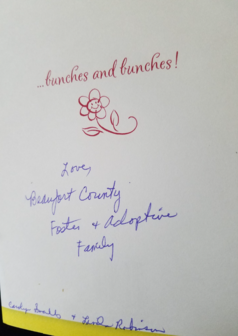 ...bunches and bunches!
Love,
Beaufort County
Foster & Adoptive
Family
& Robinson